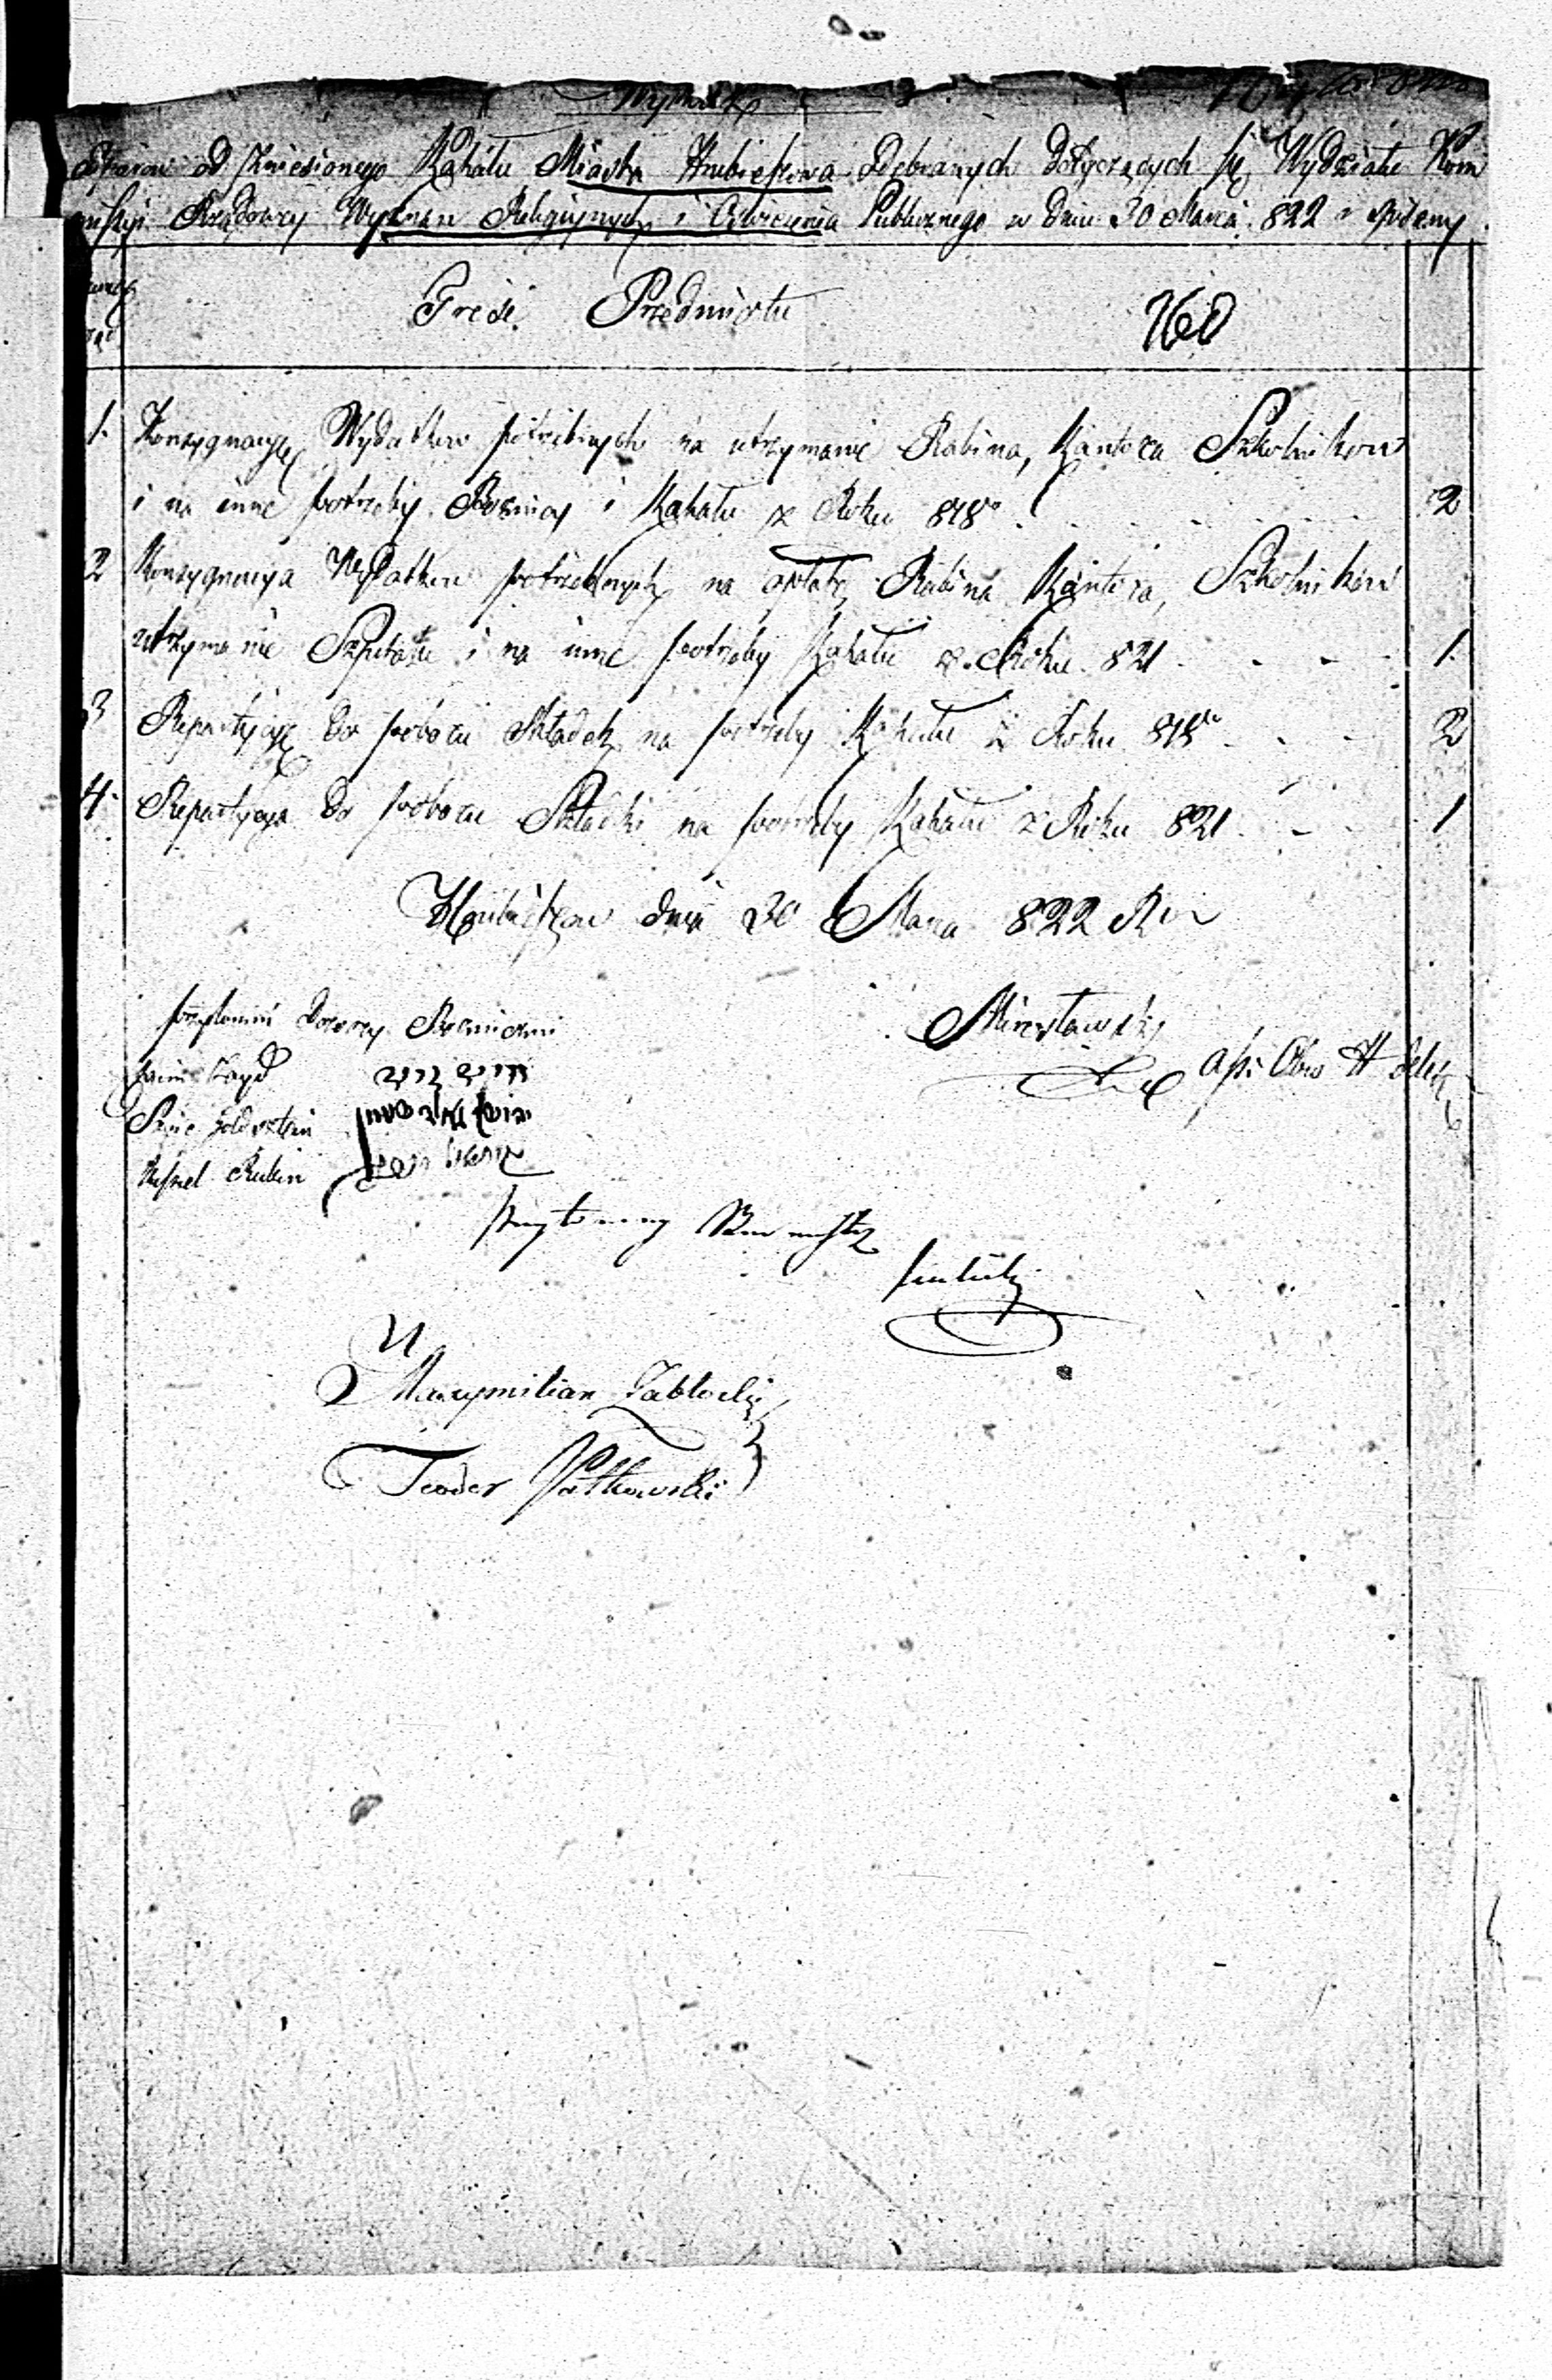 Wykaz
Papierów od Zniesionego Kahału Miasta Hrubieszowa Odebranych dotyczących się Wydziału Kom
missyi Rządowey Wyznań Religiynych i Oświecenia Publicznego w dniu 30 Marca 822 r spisany
Treść Przedmiotu
160
1. Konsygnacye Wydatków potrzebnych na utrzymanie Rabina, Kantora Szkolników
i na inne potrzeby Boźnicy i Kahału z Roku 818 2
2 Konsygnacya Wydatków potrzebnych na opłatę Rabina Kantora, Szkolników
utrzymanie Szpitala i na inne potrzeby Kahału z Roku 821 1.
3 Repartycye do poboru Składek na potrzeby Kahału z Roku 818 2
4. Repartycya do poboru Składki na potrzeby Kahału z Roku 821 1
Hrubieszów dnia 30 Marca 822 R
przytomni Dozorcy Bożniczni
Mirosławski
Rubin
przytomny Burmistrz
Maxymilian Zabłocki
Teodor Pathowski